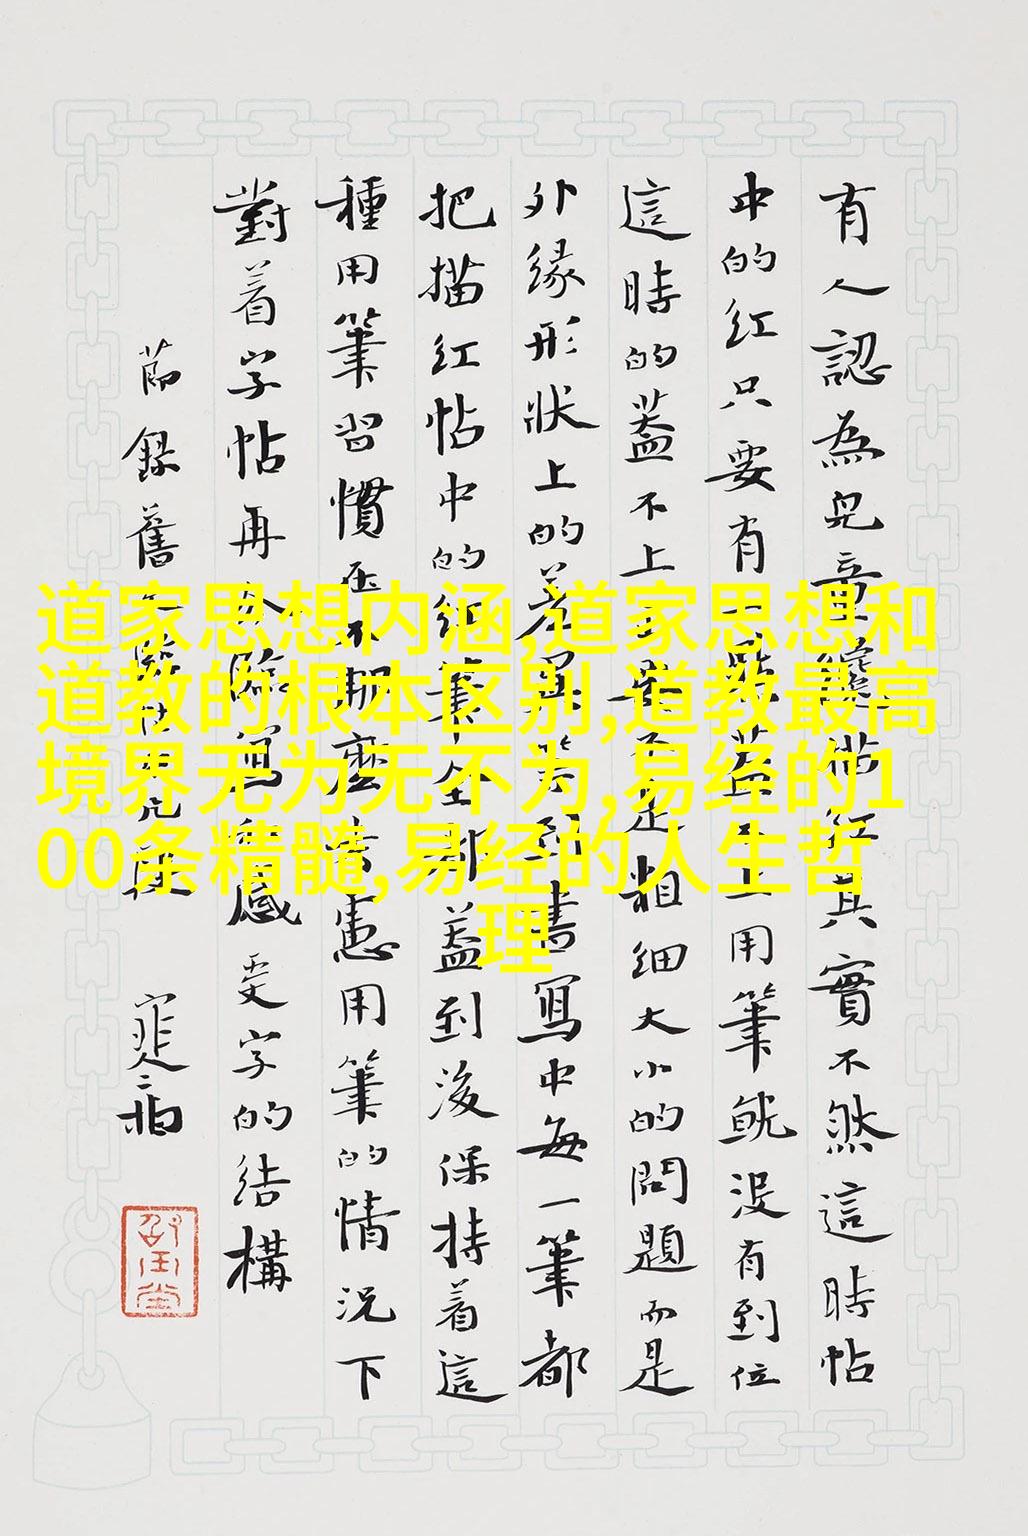 有人認為兒童纔描紅其實不然這時帖
中的紅只要有一點蓋不上用筆就没有到位
這時的蓋不上不是粗細大小的問題而是
外緣形狀上的差異等到書寫中每一筆都
把描紅帖中的紅筆全部蓋到後保持着這
種用筆習慣在不那麼注意用筆的情況下
對着字帖再臨寫感受字的結構
節錄舊
道家思想内涵,道家思想和
道教的根本区别,道教最高
境界无为无不为,易经的1
00条精髓,易经的人生哲
理